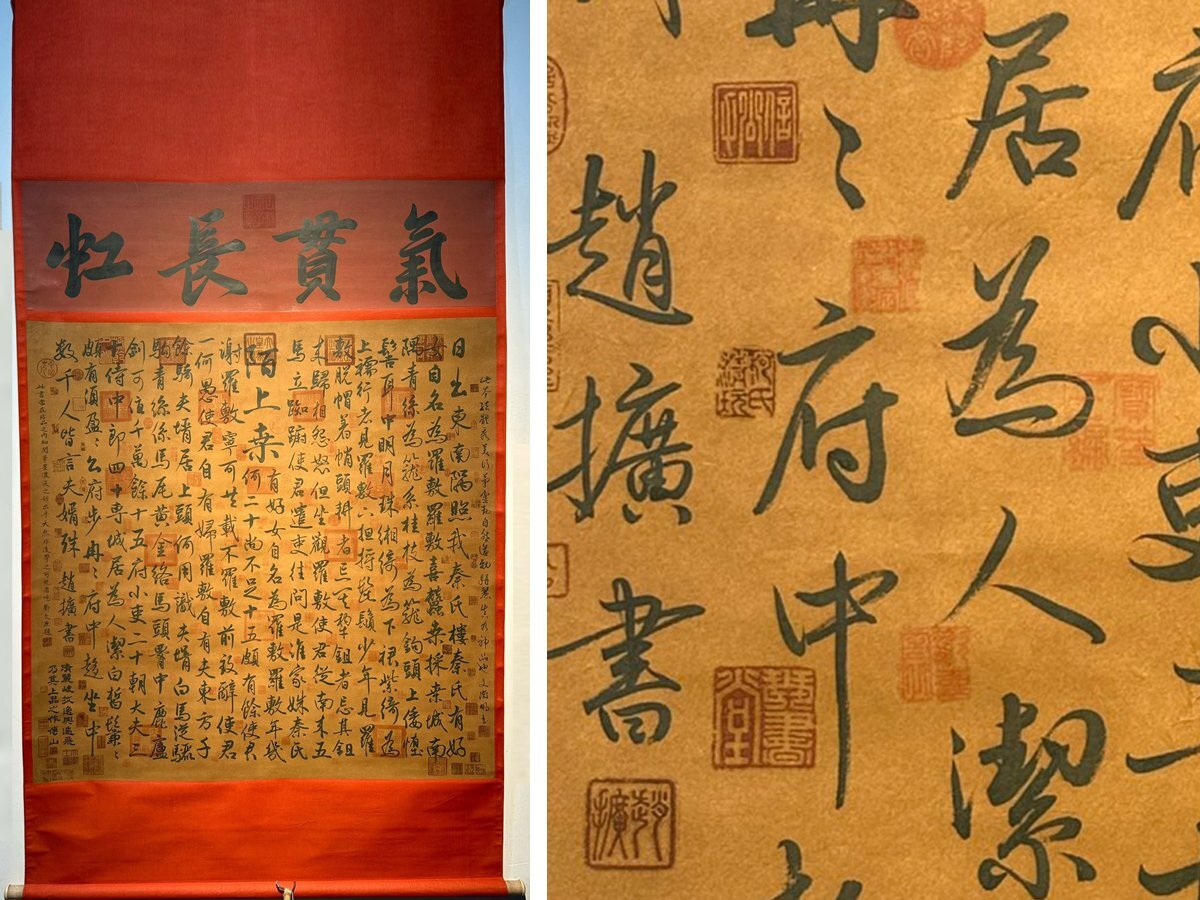 氣貫長虹
日出東南隅照我秦氏樓秦氏有好
女自名為羅敷羅敷喜蠶桑採桑城南
隅青絲為籠系桂枝為籠鉤頭上倭墮
髻耳中明月珠緗綺為下裙紫綺為
上襦行者見羅敷下擔捋髭鬚少年見羅
敷脫帽著帩頭耕者忘其犁鋤者忘其鋤
來歸相怨怒但坐觀羅敷使君從南來五
馬立踟躕使君遣吏往問是誰家姝秦氏
陌上桑
有好女自名為羅敷羅敷年幾
何二十尚不足十五頗有餘使君
謝羅敷寧可共載不羅敷前致辭使君
一何愚使君自有婦羅敷自有夫東方千
餘騎夫婿居上頭何用識夫婿白馬從驪
駒青絲係馬尾黃金絡馬頭腰中鹿盧
劍可值千萬餘十五府小吏二十朝大夫三
十侍中郎四十專城居為人潔白皙鬑〻
頗有須盈〻公府步冉〻府中趨坐中
數千人皆言夫婿殊 趙擴書
清麗峻拔逸興遄飛
乃其上品之作傅山
居為人潔
冉〻府中
趙擴書
趙擴